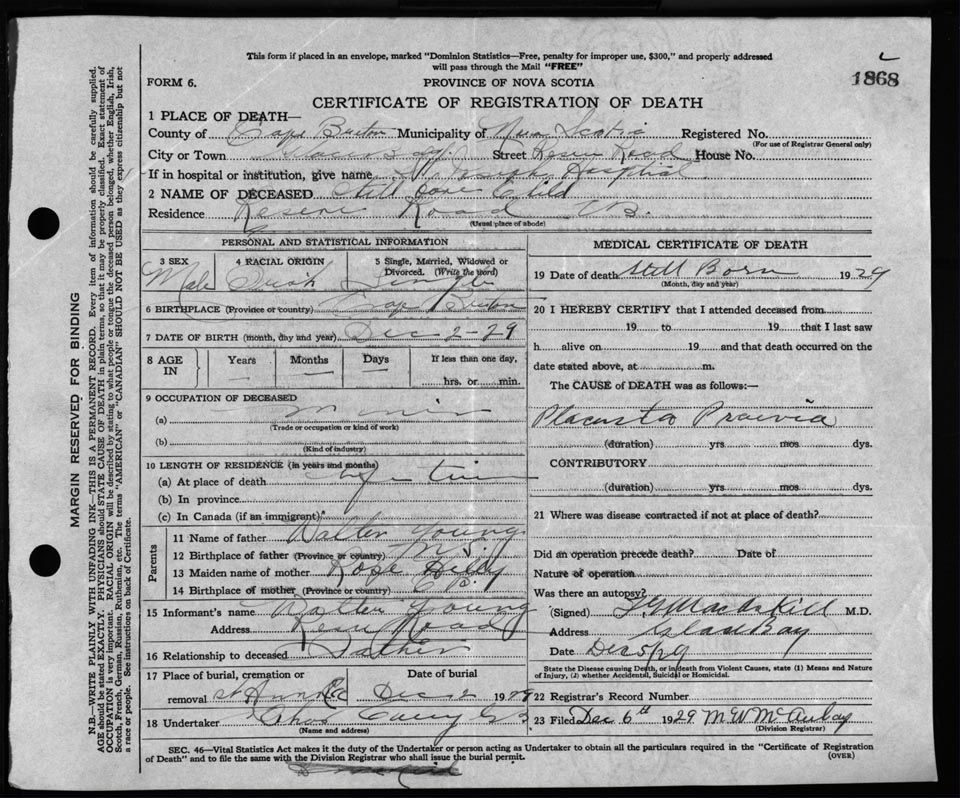 This form if placed in an envelope, marked "Dominion Statistics—Free, penalty for improper use, $300," and properly addressed
will pass through the Mail "FREE"
FORM 6.
PROVINCE OF NOVA SCOTIA
1868
CERTIFICATE OF REGISTRATION OF DEATH
1 PLACE OF DEATH—
County of Cape Breton Municipality of Nova Scotia Registered No.
(For use of Registrar General only)
City or Town Glace Bay Street Reserve Road House No.
If in hospital or institution, give name St Joseph Hospital
2 NAME OF DECEASED Still born Child
Residence Reserve Road C.B.
(Usual place of abode)
PERSONAL AND STATISTICAL INFORMATION
3 SEX Male
4 RACIAL ORIGIN Irish
5 Single, Married, Widowed or Divorced. (Write the word) Single
6 BIRTHPLACE (Province or country) Cape Breton
7 DATE OF BIRTH (month, day and year) Dec 2 - 29
8 AGE IN Years — Months — Days — If less than one day, hrs. or min.
9 OCCUPATION OF DECEASED
(a)
(Trade or occupation or kind of work)
(b)
(Kind of industry)
10 LENGTH OF RESIDENCE (in years and months)
(a) At place of death
(b) In province
(c) In Canada (if an immigrant)
Parents
11 Name of father Walter Young
12 Birthplace of father (Province or country) N.S.
13 Maiden name of mother Rose
14 Birthplace of mother (Province or country) C.B.
15 Informant's name Walter Young
Address Reserve Road
16 Relationship to deceased Father
17 Place of burial, cremation or removal St Anns Date of burial Dec 2 1929
18 Undertaker Chas Curry G B
(Name and address)
MEDICAL CERTIFICATE OF DEATH
19 Date of death Still Born 1929
(Month, day and year)
20 I HEREBY CERTIFY that I attended deceased from
19 to 19 that I last saw
h alive on 19 and that death occurred on the
date stated above, at m.
The CAUSE of DEATH was as follows:—
Placenta Praevia
(duration) yrs mos dys.
CONTRIBUTORY
(duration) yrs mos dys.
21 Where was disease contracted if not at place of death?
Did an operation precede death? Date of
Nature of operation
Was there an autopsy?
(Signed) MacAskill M.D.
Address Glace Bay
Date Dec 5/29
State the Disease causing Death, or in death from Violent Causes, state (1) Means and Nature
of Injury, (2) whether Accidental, Suicidal or Homicidal.
22 Registrar's Record Number
23 Filed Dec 6th 1929 M. W. McAulay
(Division Registrar)
SEC. 46—Vital Statistics Act makes it the duty of the Undertaker or person acting as Undertaker to obtain all the particulars required in the "Certificate of Registration
of Death" and to file the same with the Division Registrar who shall issue the burial permit.
(OVER)
MARGIN RESERVED FOR BINDING
N.B.—WRITE PLAINLY WITH UNFADING INK—THIS IS A PERMANENT RECORD. Every item of information should be carefully supplied.
AGE should be stated EXACTLY. PHYSICIANS should STATE CAUSE OF DEATH in plain terms, so that it may be properly classified. Exact statement of
OCCUPATION is very important. RACIAL ORIGIN will be described by stating to what people or tongue the deceased person belonged, whether English, Irish,
Scotch, French, German, Russian, Ruthenian, etc. The terms "AMERICAN" or "CANADIAN" SHOULD NOT BE USED as they express citizenship but not
a race or people. See instructions on back of Certificate.